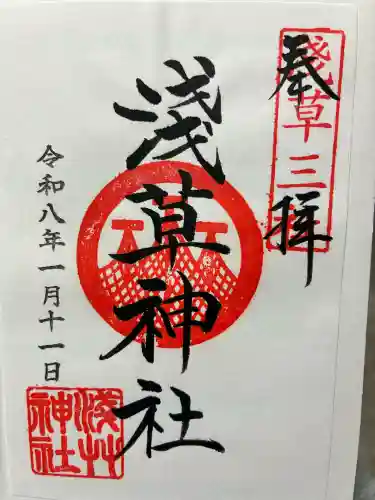 奉拝
淺草三社
淺草神社
令和八年一月十一日
淺草神社